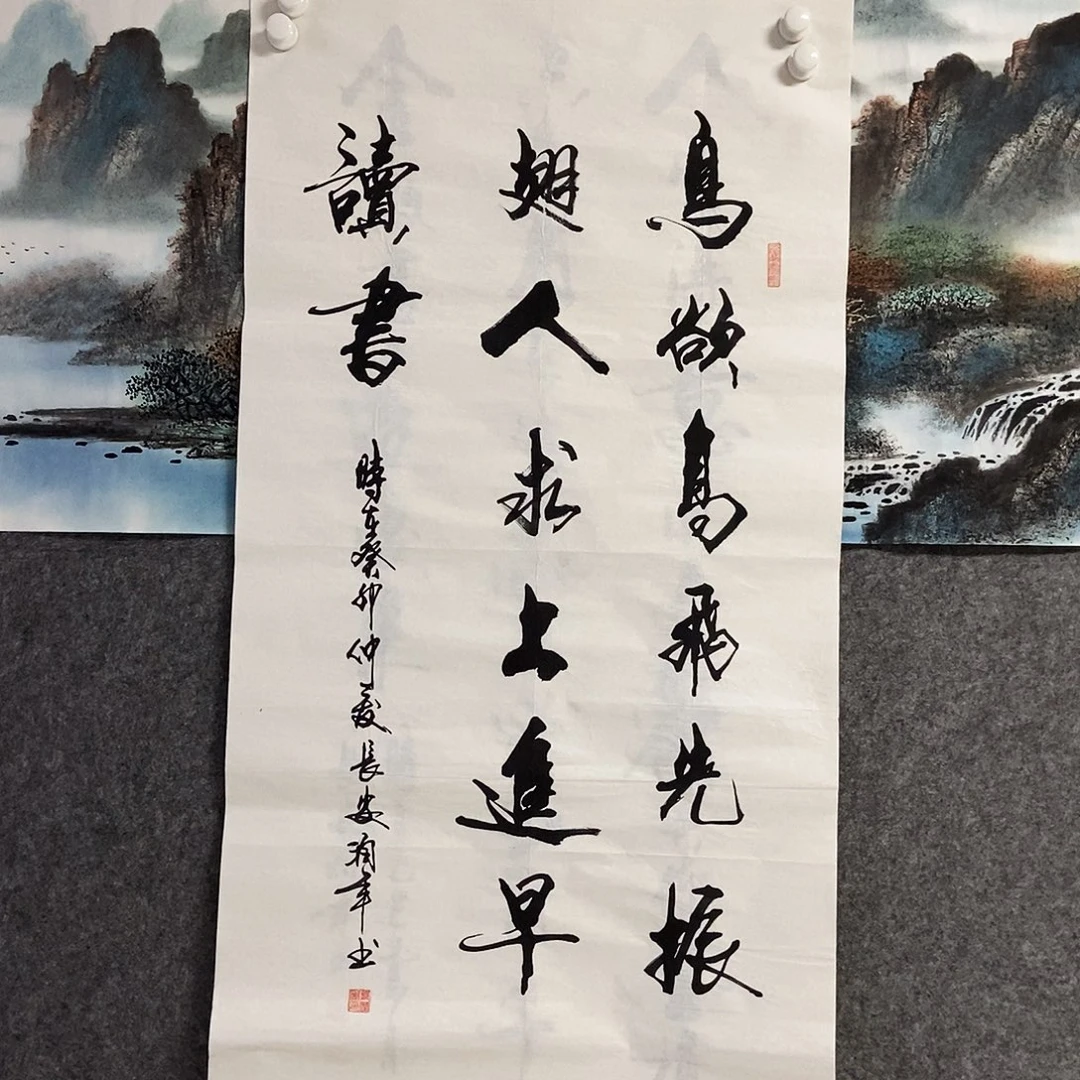 鳥欲高飛先振
翅人求上進早
讀書
時在癸卯仲夏長安潤年书